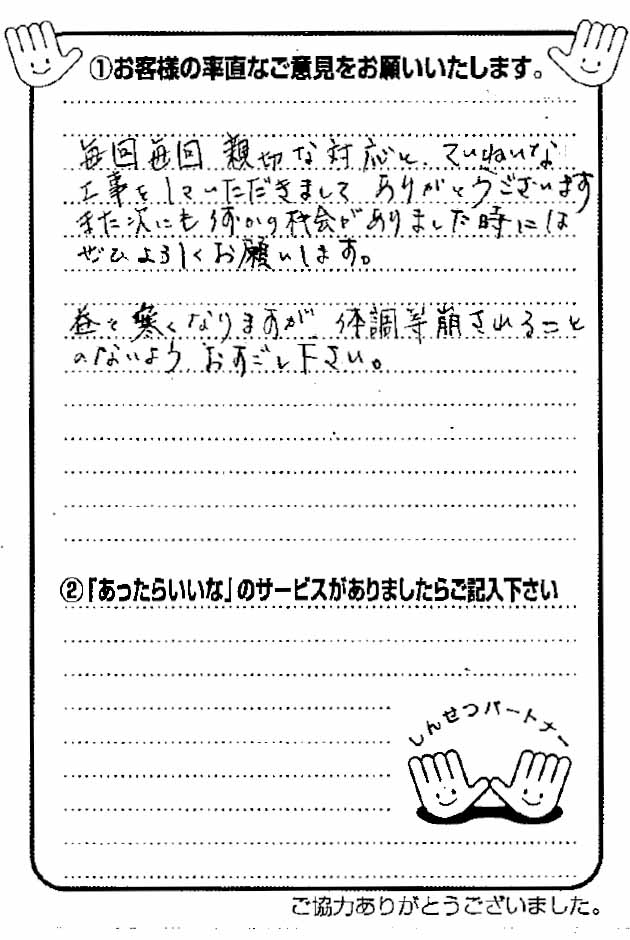 ①お客様の率直なご意見をお願いいたします。
毎回毎回 親切な対応と、ていねいな
工事をしていただきまして ありがとうございます
また次にも何かの機会がありました時には
ぜひよろしくお願いします。
益々寒くなりますが、体調等崩されること
のないよう おすごし下さい。
②「あったらいいな」のサービスがありましたらご記入下さい
しんせつパートナー
ご協力ありがとうございました。